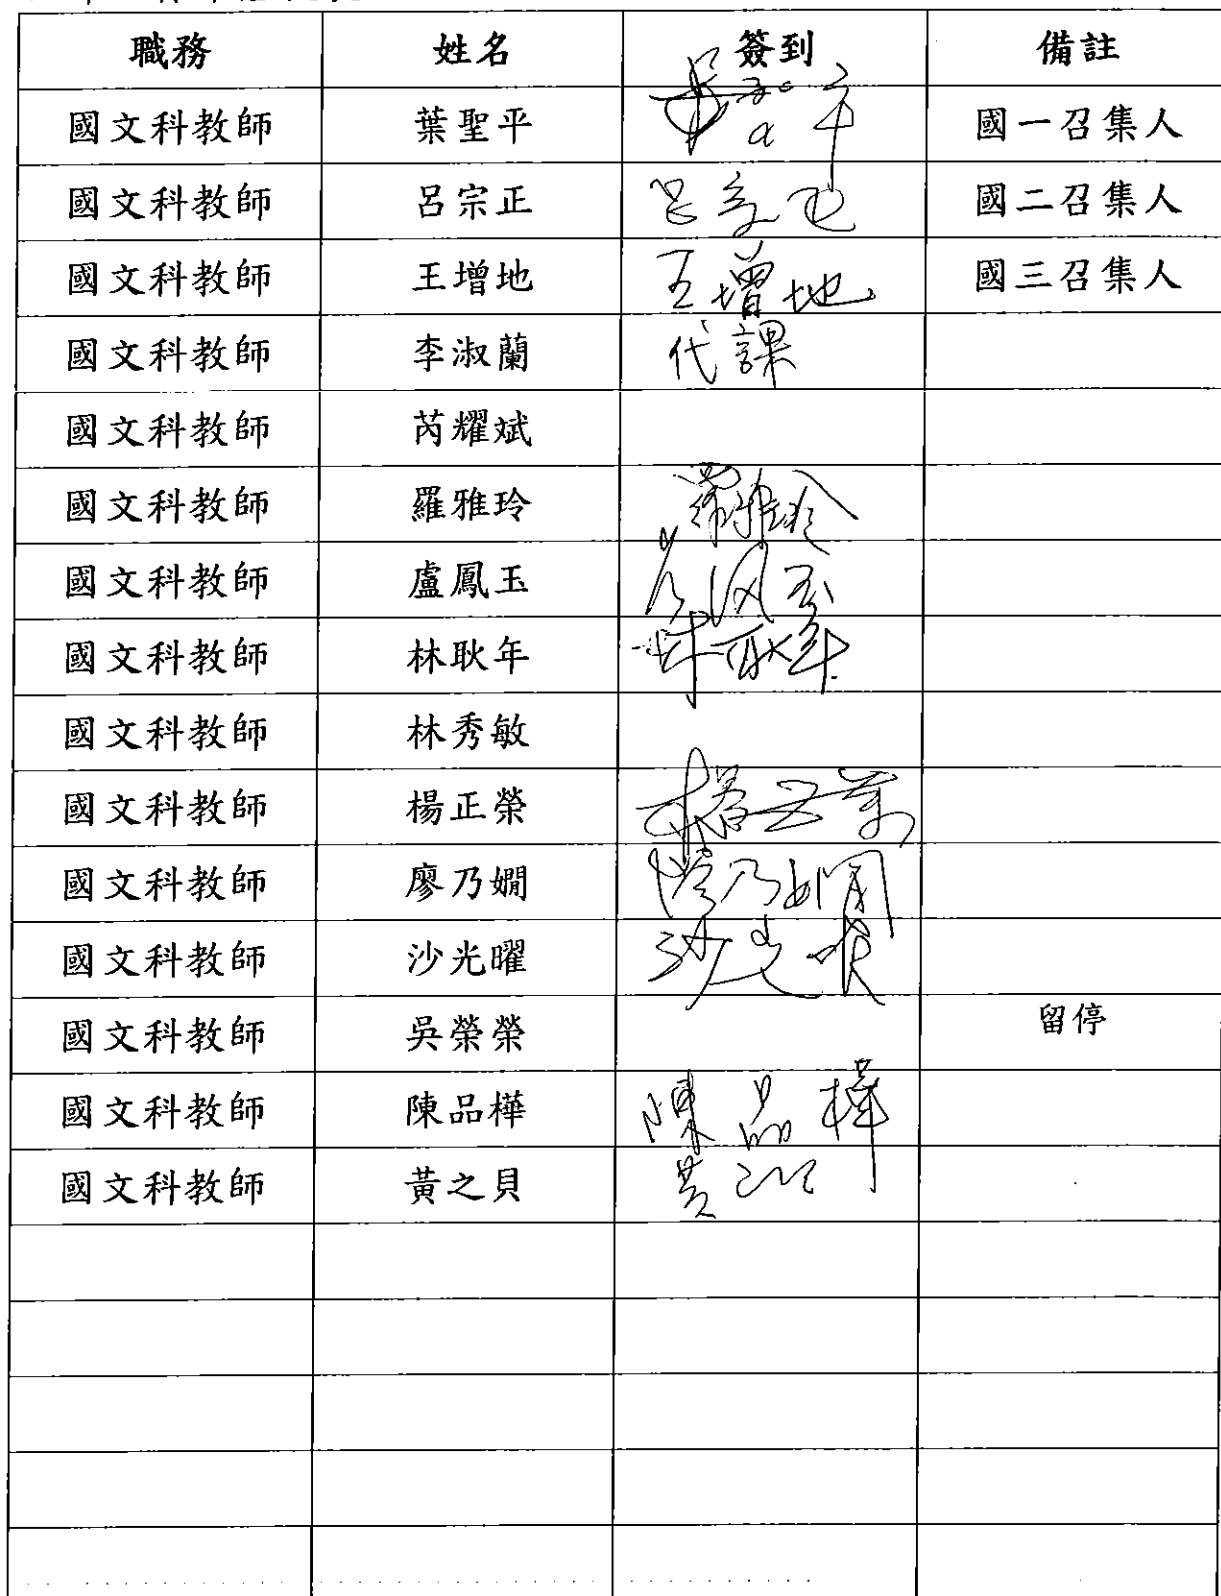 職務 姓名 簽到 備註
國文科教師 葉聖平 國一召集人
國文科教師 呂宗正 呂宗正 國二召集人
國文科教師 王增地 王增地 國三召集人
國文科教師 李淑蘭 代課
國文科教師 芮耀斌
國文科教師 羅雅玲 羅雅玲
國文科教師 盧鳳玉
國文科教師 林耿年 林耿年
國文科教師 林秀敏
國文科教師 楊正榮 楊正榮
國文科教師 廖乃嫺 廖乃嫺
國文科教師 沙光曜 沙光曜
國文科教師 吳榮榮 留停
國文科教師 陳品樺 陳品樺
國文科教師 黃之貝 黃之貝